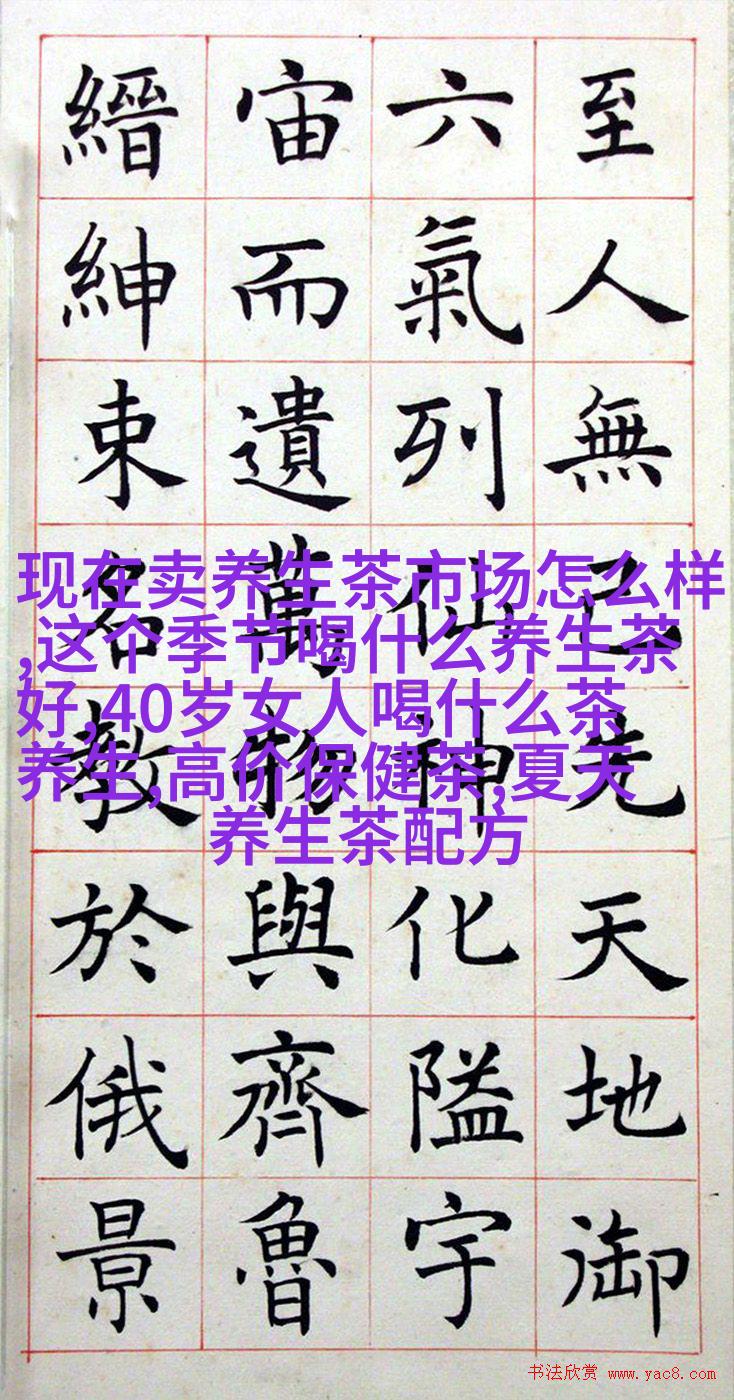 至人無己先天地御
六氣列仙神化隘宇
宙而遺萬物與齊魯
縉紳束名教於俄景
现在卖养生茶市场怎么样
,这个季节喝什么养生茶
好,40岁女人喝什么茶
养生,高价保健茶,夏天
养生茶配方
书法欣赏 www.yac8.com